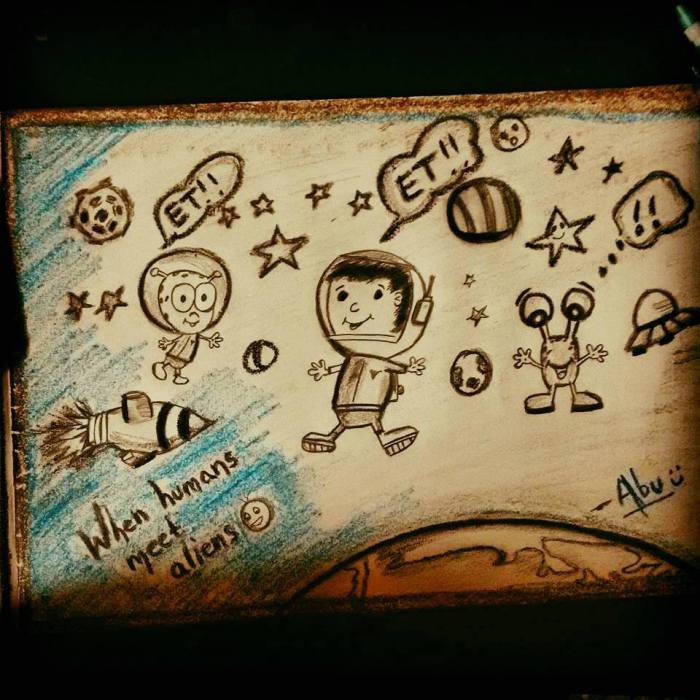 ET!!
ET!!
!!
When humans
meet
aliens
- Abu